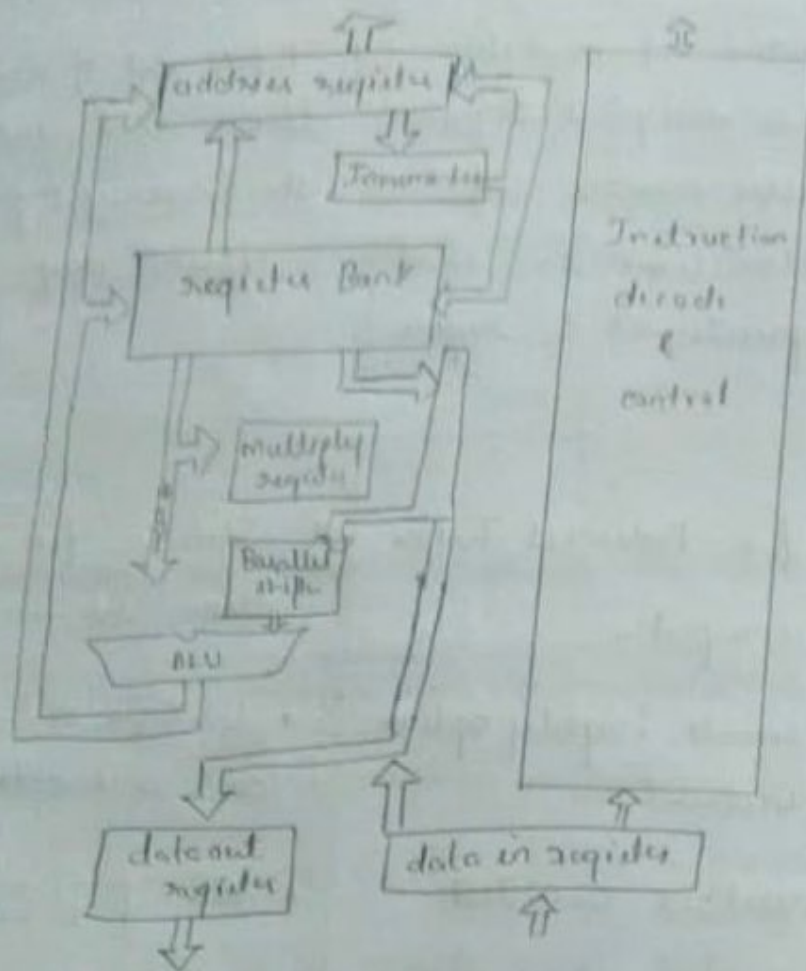 address register
Incrementer
register Bank
Instruction
decode
&
control
multiply
register
Barallel
shift
ALU
data out
register
data in register